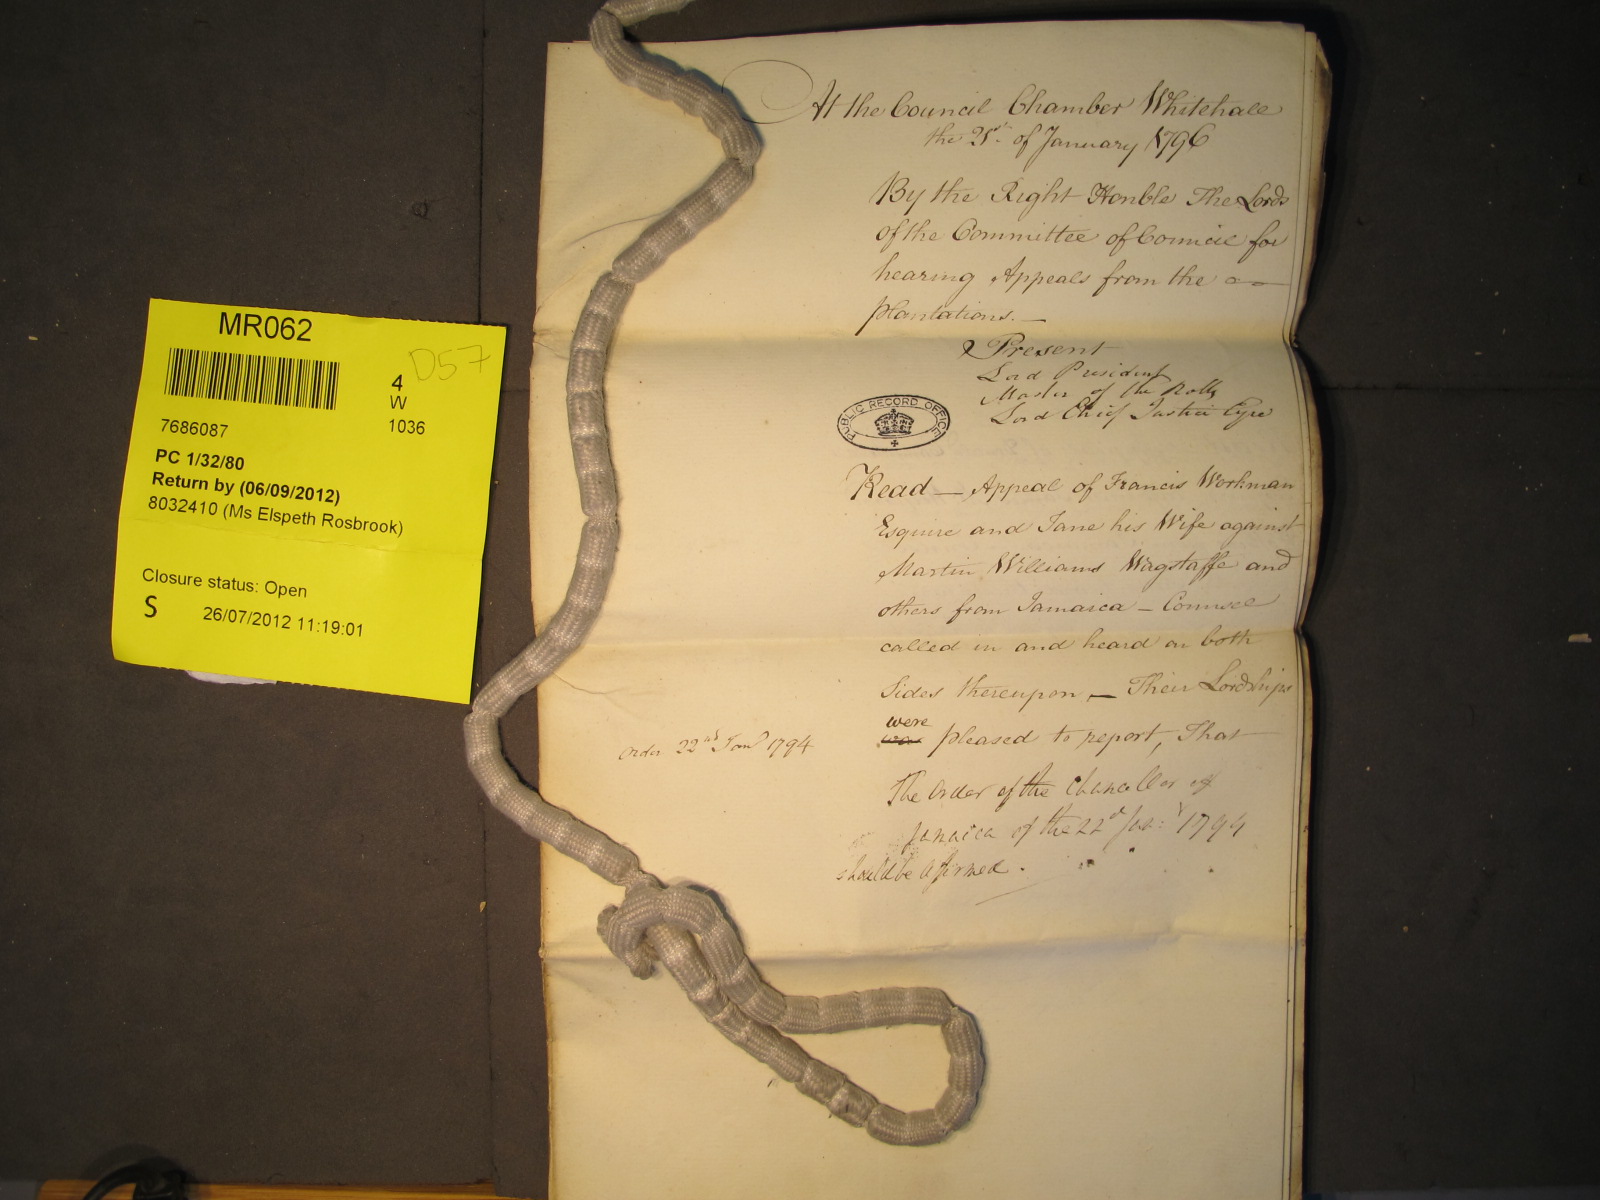 MR062
D57
4
W
1036
7686087
PC 1/32/80
Return by (06/09/2012)
8032410 (Ms Elspeth Rosbrook)
Closure status: Open
S 26/07/2012 11:19:01
At the Council Chamber Whitehall
the 21st. of January 1796
By the Right Honble The Lords
of the Committee of Council for
hearing Appeals from the
Plantations.—
Present
Lord President
Master of the Rolls
Lord Chief Justice Eyre
PUBLIC RECORD OFFICE
Read — Appeal of Francis Workman
Esquire and Jane his Wife against
Martin Williams Wagstaffe and
others from Jamaica — Counsel
called in and heard on both
Sides thereupon — Their Lordships
were
was pleased to report, That
Order 22nd Jany 1794
The Order of the Chancellor of
Jamaica of the 22d Jan:y 1794
should be affirmed.